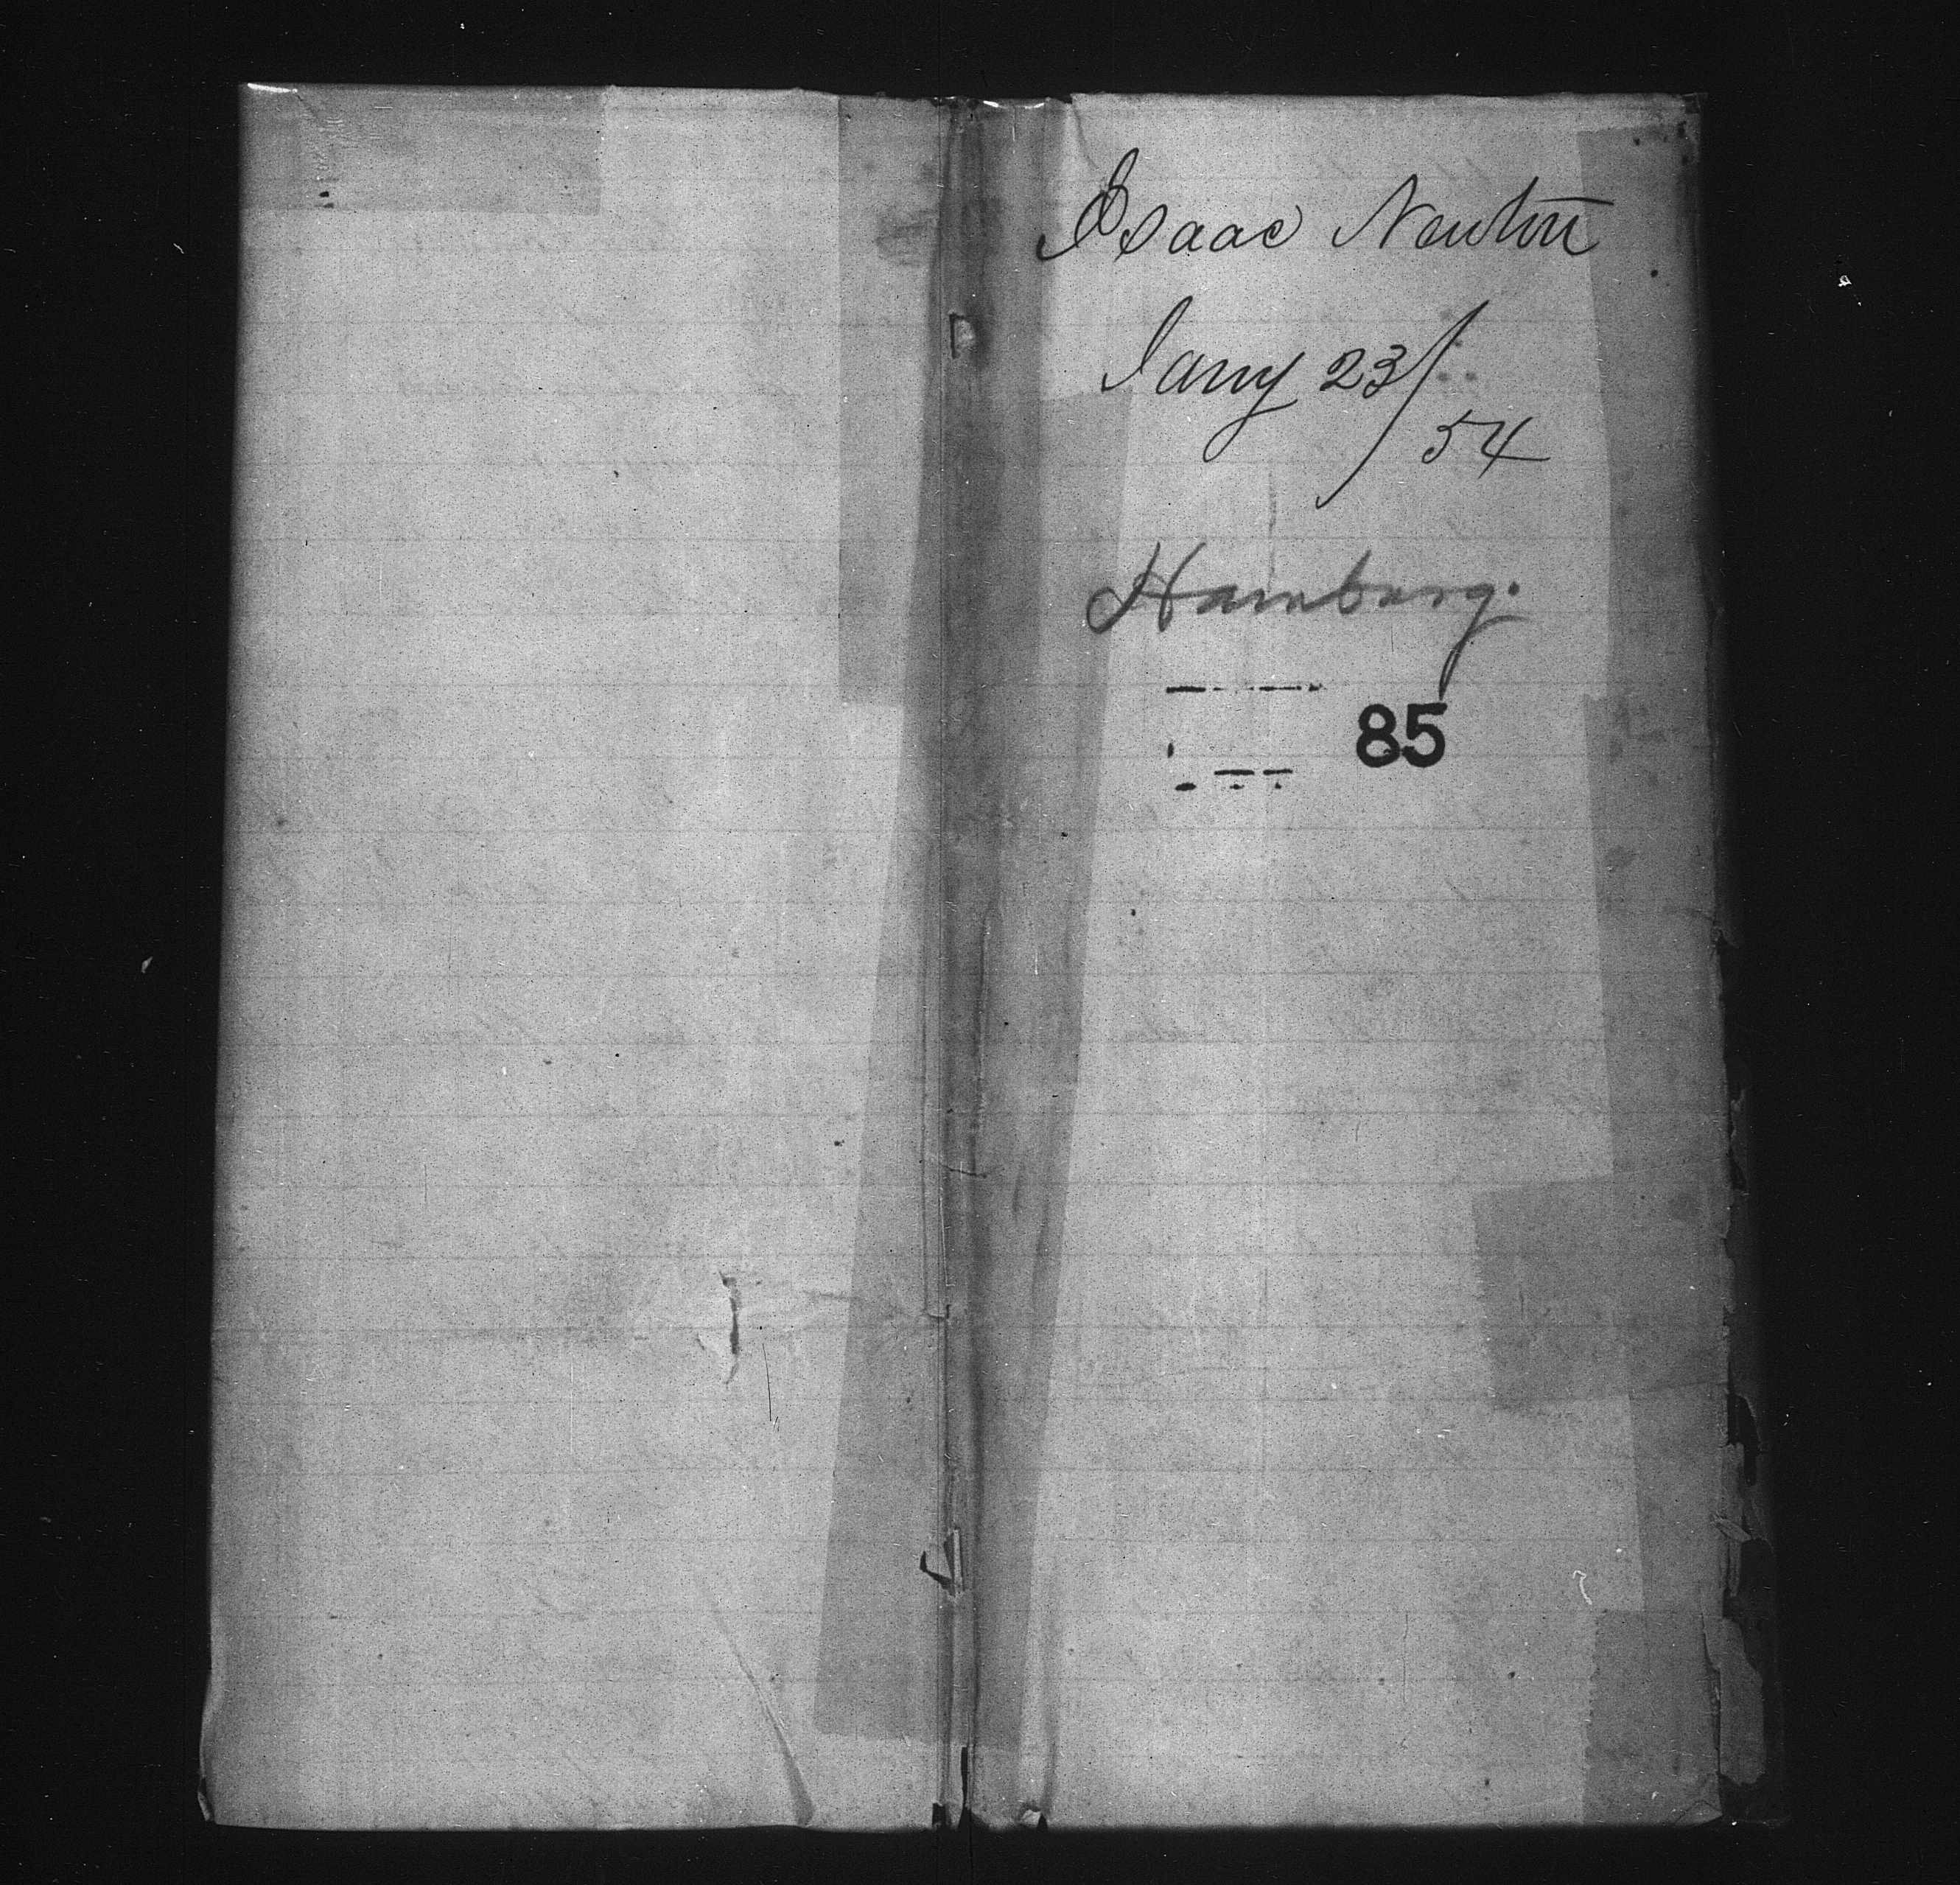 Isaac Newton
Jany 23/
54
Hamburg.
85